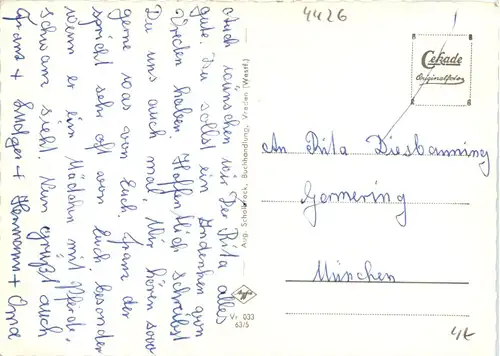 Auch wünschen wir Dir Rita alles
gute. Du sollst ein Andenken von
Vreden haben. Hoffentlich schreibst
Du uns auch mal, Wir hören
gerne was von Euch. Franz der
spricht sehr oft von Euch. besonder
wenn er ein Mädchen mit Pferde-
schwanz sieht. Nun grüßt auch
Franz + Ludger + Hermann + Oma
Aug. Buchhandlung, Vreden (Westf.)
Agfa
Vr 033
63/5
4426
Cekade
Originalfoto
An Rita Diesbanning
Germering
München